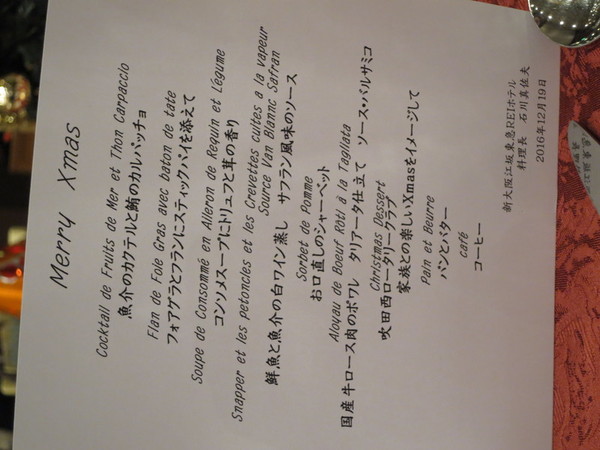 Merry Xmas
Cocktail de Fruits de Mer et Thon Carpaccio
魚介のカクテルと鮪のカルパッチョ
Flan de Foie Gras avec baton de tate
フォアグラとフランにスティックパイを添えて
Soupe de Consommé en Aileron de Requin et Légume
コンソメスープにトリュフと茸の香り
Snapper et les petoncles et les Crevettes cuites a la vapeur
Source Van Blannc Safran
鮮魚と魚介の白ワイン蒸し サフラン風味のソース
Sorbet de Pomme
お口直しのシャーベット
Aloyau de Boeuf Rôti à la Tagliata
国産牛ロース肉のポワレ タリアータ仕立て ソース・バルサミコ
Christmas Dessert
吹田西ロータリークラブ
家族との楽しいXmasをイメージして
Pain et Beurre
パンとバター
café
コーヒー
新大阪江坂東急REIホテル
料理長 石川真佐夫
2016年12月19日